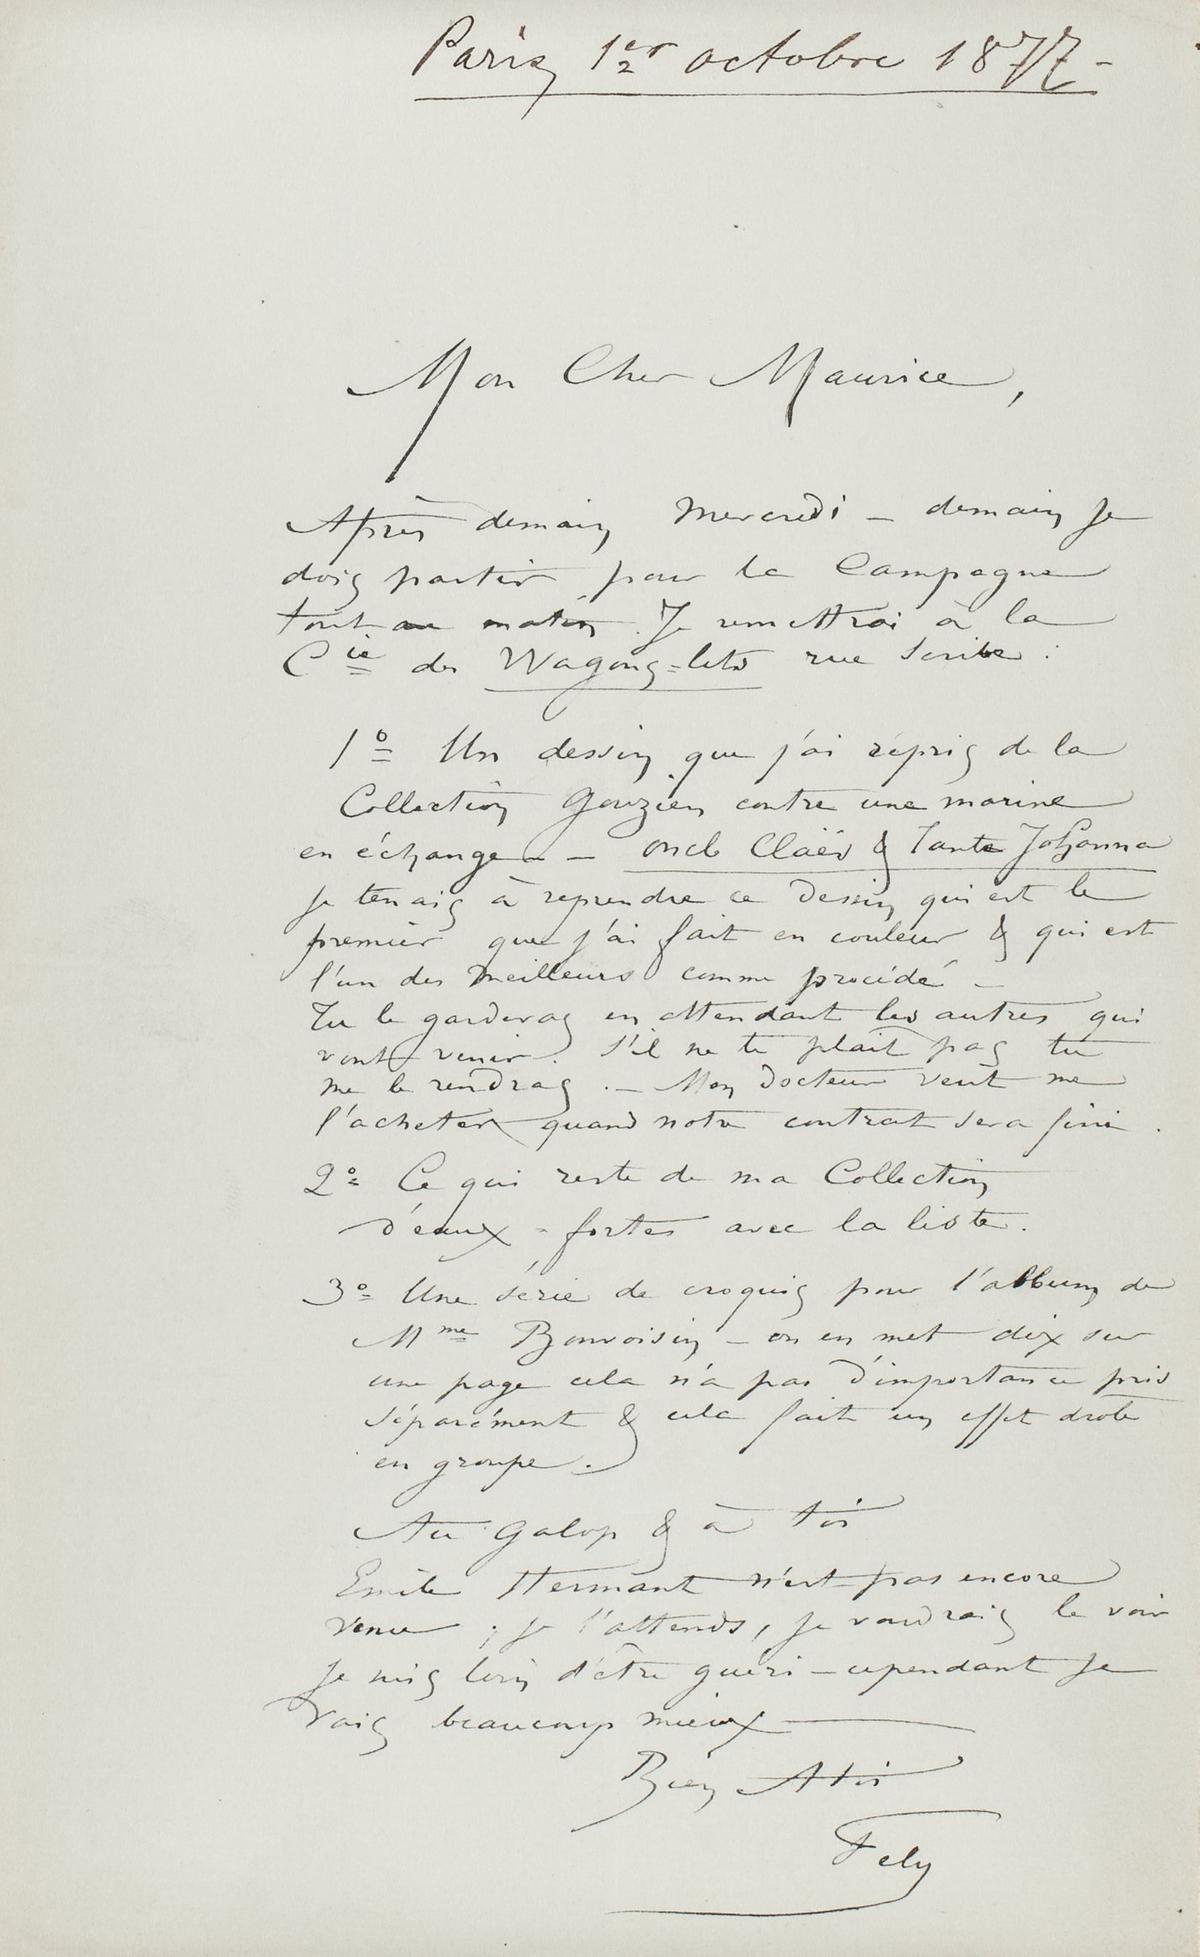 Paris 1er octobre 1877 -
Mon Cher Maurice,
Après demain Mercredi - demain je
dois partir pour la Campagne
tout au matin. Je remettrai à la
Cie des Wagons-lits rue Scribe :
1º Un dessin que j'ai repris de la
Collection Gouzien contre une marine
en échange - - oncle Claës & Tante Johanna
je tenais à reprendre ce dessin qui est le
premier que j'ai fait en couleur & qui est
l'un des meilleurs comme procédé -
Tu le garderas en attendant les autres qui
vont venir. S'il ne te plait pas tu
me le rendras. - Mon Docteur veut me
l'acheter quand notre contrat sera fini.
2º Ce qui reste de ma Collection
d'eaux-fortes avec la liste.
3º Une série de croquis pour l'album de
Mme Bonvoisin - on en met dix sur
une page cela n'a pas d'importance pris
séparément & cela fait un effet drole
en groupe.
Au Galop & à toi
Emile Hermant n'est pas encore
venu ; je l'attends, je voudrais le voir
je suis loin d'être guéri - cependant je
vais beaucoup mieux
Bien A toi
Fely